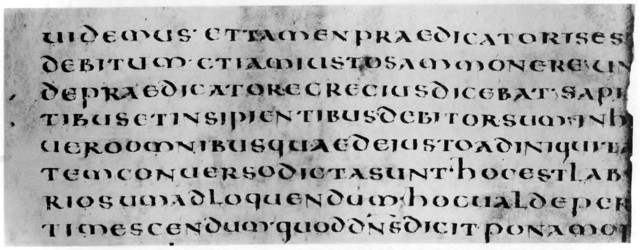 UIDEMUS· ET TAMEN PRAEDICATORIS ES
DEBITUM· ETIAM IUSTOS AMMONERE· UN
DE PRAEDICATOR EGREGIUS DICEBAT· SAPI
TIBUS ET INSIPIENTIBUS DEBITOR SUM· IN H
UERO OMNIBUS QUAE DE IUSTO AD INIQUITA
TEM CONUERSO DICTA SUNT· HOC EST LAB
RIOSUM AD LOQUENDUM· HOC UALDE PER
TIMESCENDUM· QUOD DN̄S DICIT PONAM O